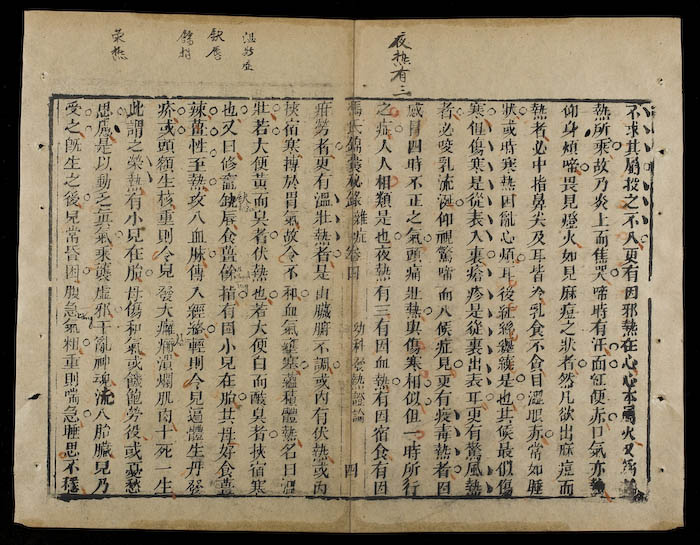 夜熱有三
不求其屬投之不入更有因邪熱在心心本屬火又
熱所乘故乃炎上而焦哭啼時有汗而紅便赤口氣亦熱
仰身煩啼畏見燈火如見麻痘之狀者然凡欲出麻痘而
熱者必中指鼻尖及耳皆冷乳食不貪目澀眼赤常如睡
狀或時寒熱因亂心煩耳後紅絲纏繞是也其候最似傷
寒但傷寒是從表入裏瘡疹是從裏出表耳更有驚風熱
者必咬乳流涎仰視驚啼面八候症見更有疫毒熱者因
感冒四時不正之氣頭痛壯熱與傷寒相似但一時所行
之症人人相類是也夜熱有三有因血熱有因宿食有因
馮氏錦囊秘錄雜症卷四 幼科發熱總論 四
溫壯症
缺唇
指
榮熱
疳勞者更有溫壯熱者是由臟腑不調或內有伏熱或內
挾宿寒搏於胃氣故令不和血氣壅塞蘊積體熱名曰溫
壯若大便黃而臭者伏熱也若大便白而酸臭者挾宿寒
也又曰修竈缺唇食薑餘指有因小兒在胎其母好食薑
辣薑性至熱攻入血脉傳入經絡輕則令兒遍體生丹發
疹或頭額生核重則令兒發大癰癤潰爛肌肉十死一生
此謂之榮熱有小兒在胎母傷和氣或饑飽勞役或憂愁
思慮是以動之真氣乘襲虛邪干亂神魂流入胎臟兒乃
受之既生之後兒常昏困腹急氣粗重則喘急睡思不穩